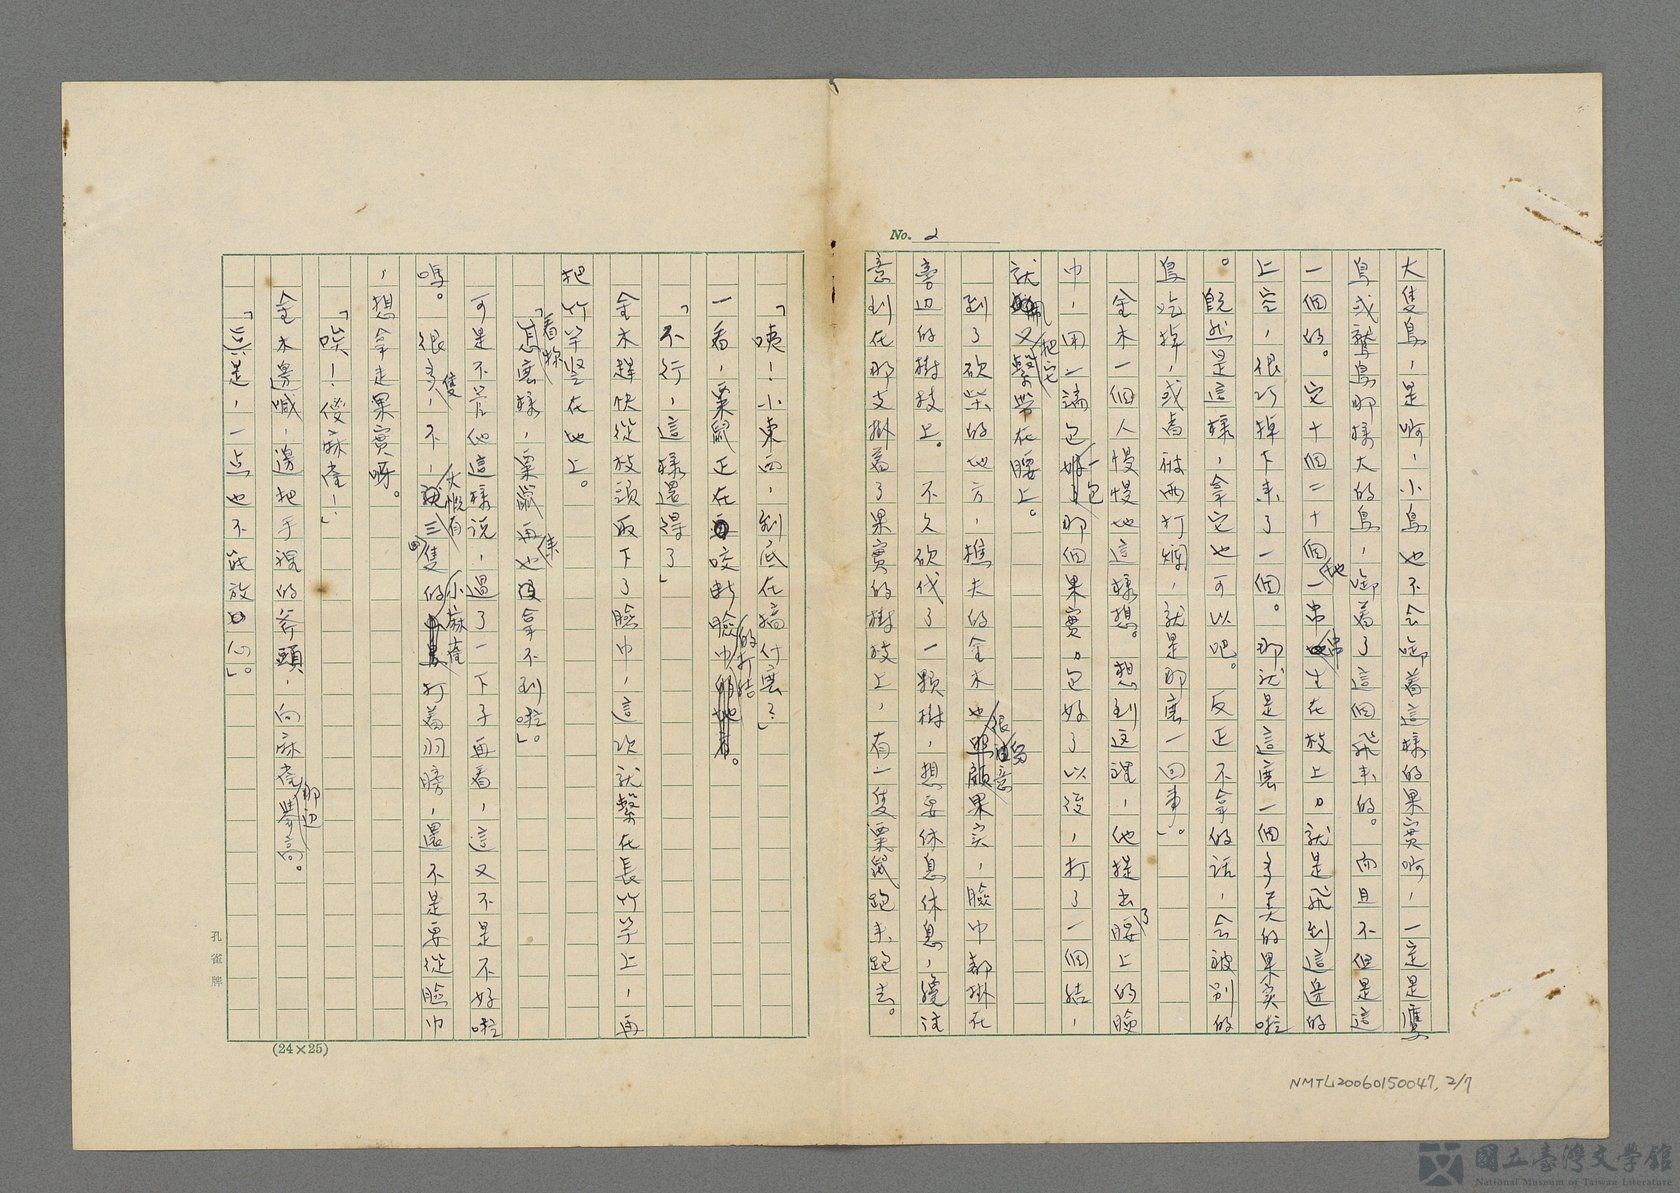 No. 2
大隻鳥，是啊，小鳥也不会啣着這樣的果實啊，一定是鷹
鳥或鷲鳥那樣大的鳥，啣着了這個飛来的。而且不但是這
一個的。它十個二十個地一串串生在枝上，就是飛到這邊的
上空，很巧掉下来了一個。那就是這麽一個多美的果实啦
。既然是這樣，拿它也可以吧。反正不拿的話，会被別的
鳥吃掉，或者被雨打爛，就是那麽一回事」。
金木一個人慢慢地這樣想。想到这裡，他提出了腰上的臉
巾，用一端包一包那個果實。包好了以後，打了一個結，
就把它又繫帶在腰上。
到了砍柴的地方，樵夫的金木也很留意果实，臉巾都掛在
旁边的樹枝上。不久砍伐了一顆樹，想要休息休息，繞注
意到在那支掛着了果實的樹枝上，有一隻栗鼠跑来跑去。
「咦！小東西，到底在搞什麽？」
一看，栗鼠正在咬断臉巾的打結。
「不行，這樣還得了」
金木趕快從枝頭取下了臉巾，這次就繫在長竹竿上，再
把竹竿竪在地上。
「看你怎麽樣，栗鼠再也拿不到啦」。
可是不管他這樣説，過了一下子再看，這又不是不好啦
嗎。很多隻，不，大概有三四隻的小麻雀打着羽膀，還不是要從臉巾
，想拿走果實呀。
「唉！傻麻雀！」
金木邊喊，邊把手裡的斧頭，向麻雀那边舉高。
「真是，一点也不能放心」。
(24×25)
孔雀牌
NMTL20060150047, 2/7
國立臺灣文學館
National Museum of Taiwan Literature